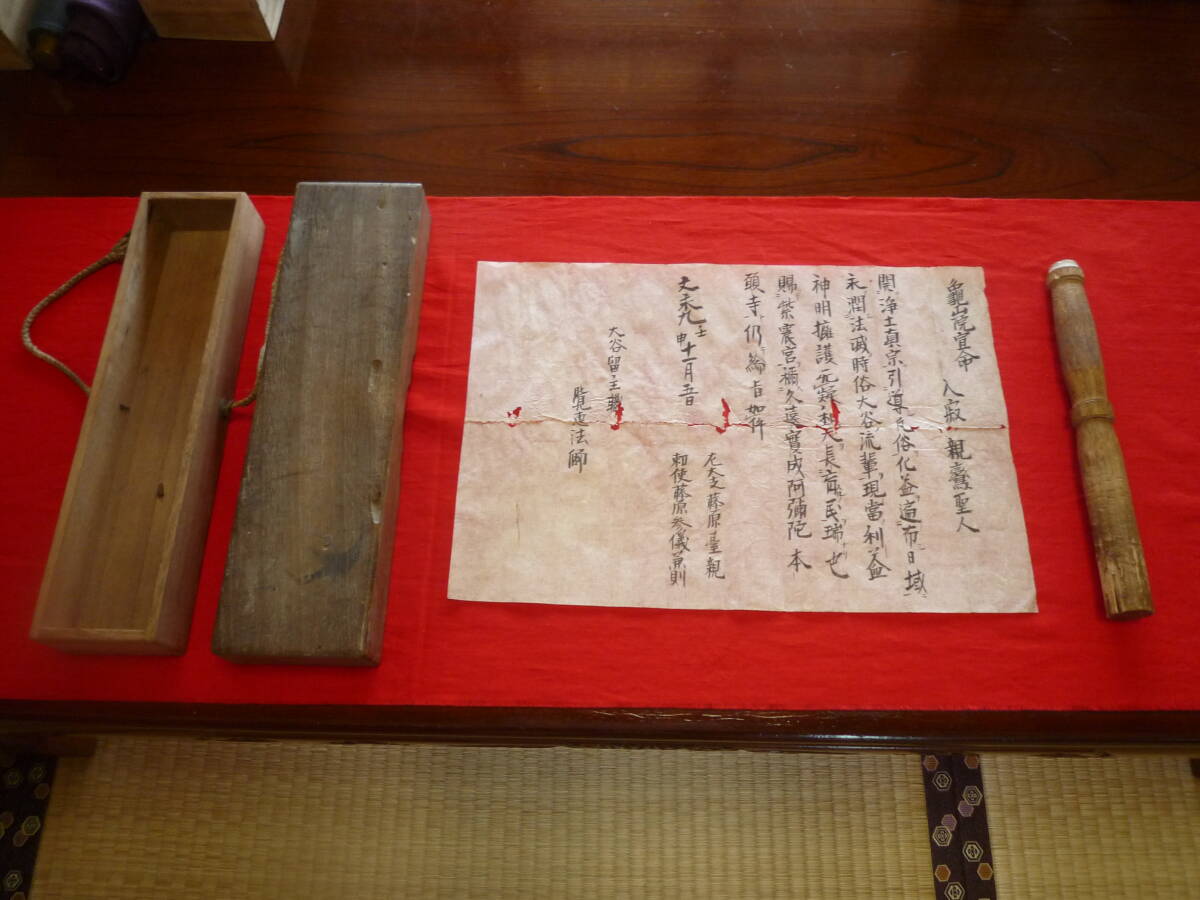 龜山院宣命 入寂 親鸞聖人
開浄土真宗引導凡俗化益遍布日域
永潤法威時俗大谷流輩現當利益
神明擁護 長 民瑞也
賜紫震宮稱久遠實成阿彌陀本
願寺仍綸旨如件
左大 藤原 親
文永九壬申十一月五日 勅使藤原参儀兼則
大谷留主職
覺恵法師